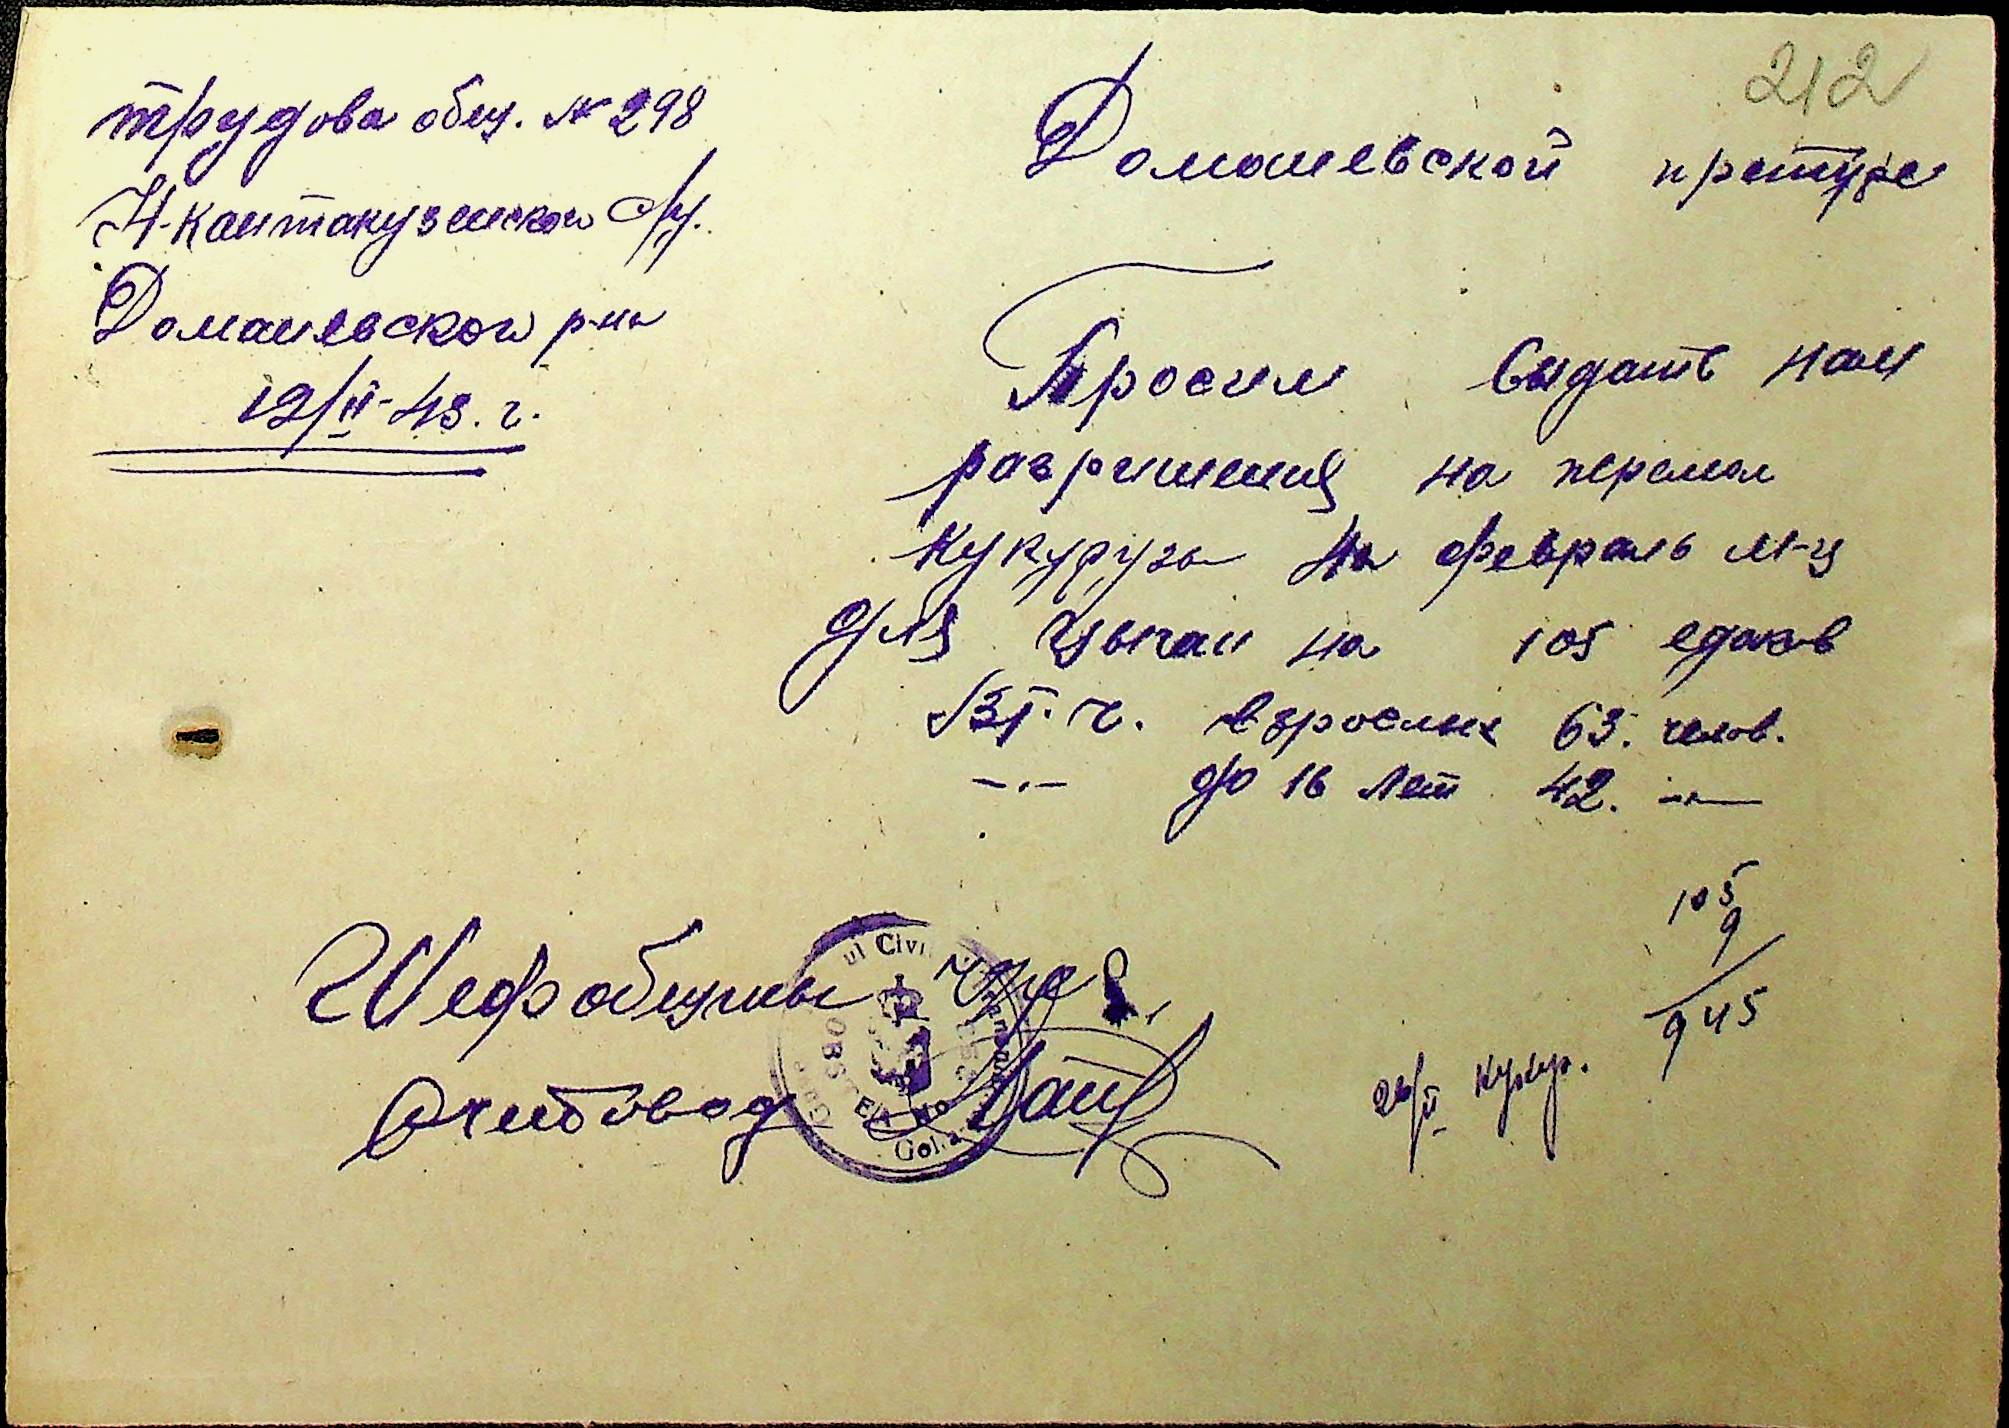 212
трудова общ. № 298
Н-Кантакузенского с/у.
Доманевского р-на
12/II-43. г.
Доманевской претуре
Просим выдать нам
разришения на перемол
кукурузы на февраль м-ц
для цыган на 105 едаков
в т. ч. взрослых 63. челов.
—·— до 16 лет 42. —"—
105
9
945
26/II кукур.
Шеф общины
Счетовод
ul Civil
Gol.